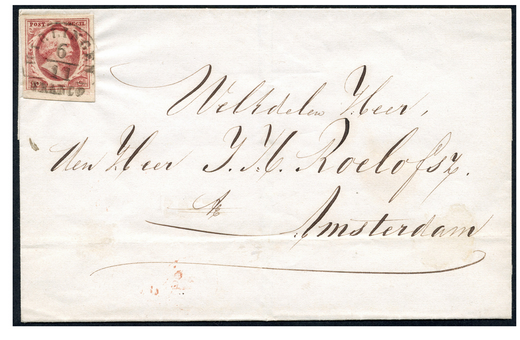 POST ZEGEL
6/11
FRANCO
Weledelen Heer,
den Heer J. H. Roelofsz.
Te
Amsterdam